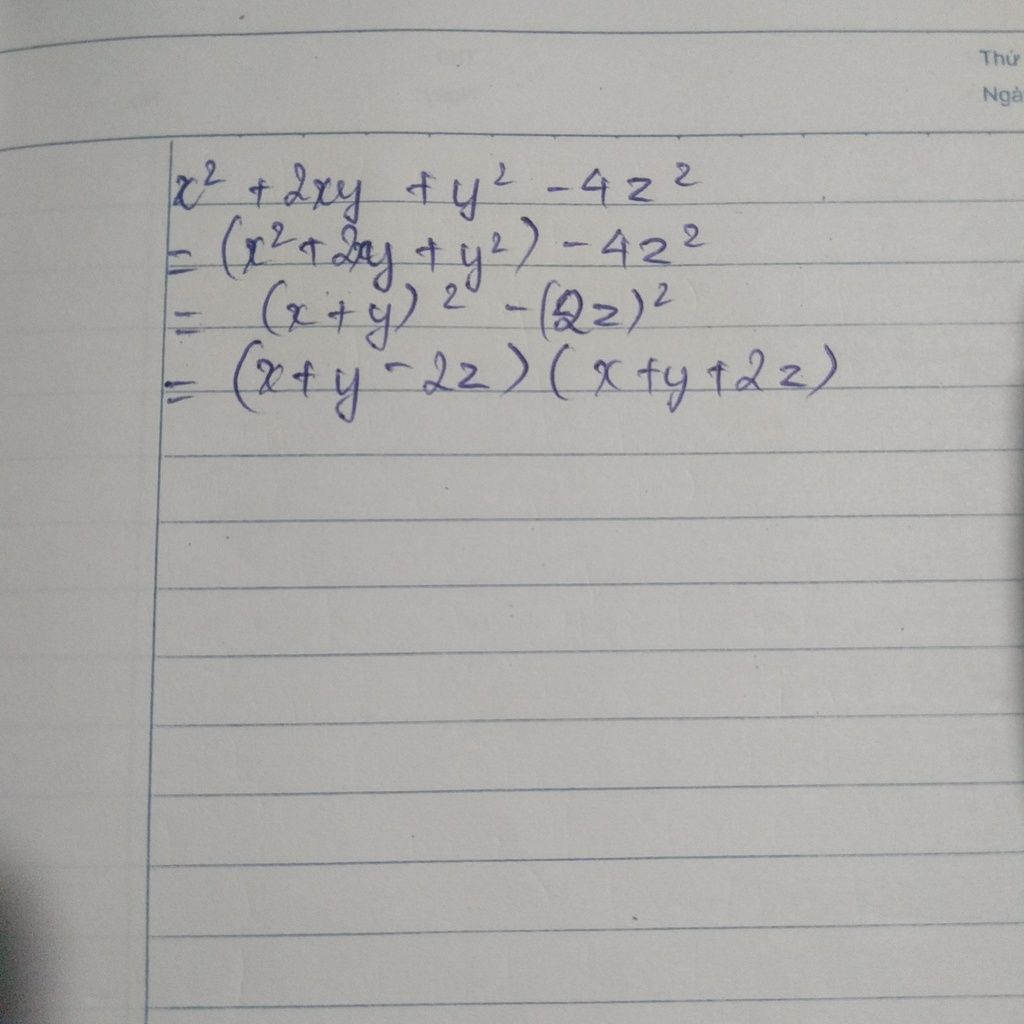 Thứ
Ngà
x² + 2xy + y² - 4z²
= (x² + 2xy + y²) - 4z²
= (x + y)² - (2z)²
= (x + y - 2z) (x + y + 2z)